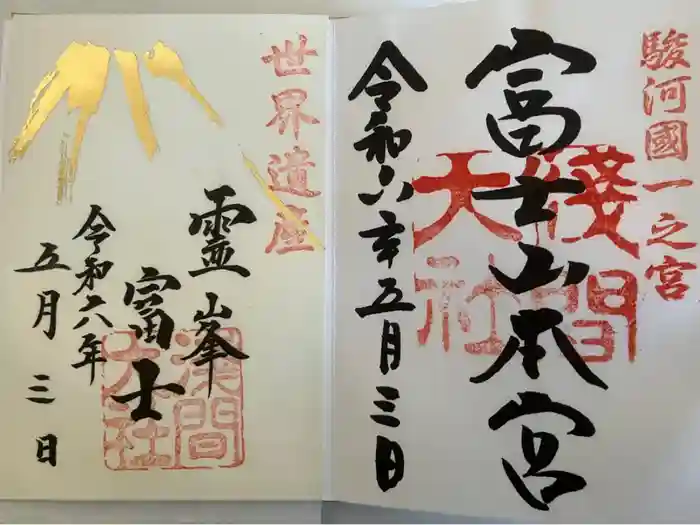 駿河國一之宮
富士山本宮
淺間大社
令和六年五月三日
世界遺産
霊峯
富士
淺間大社
令和六年
五月三日